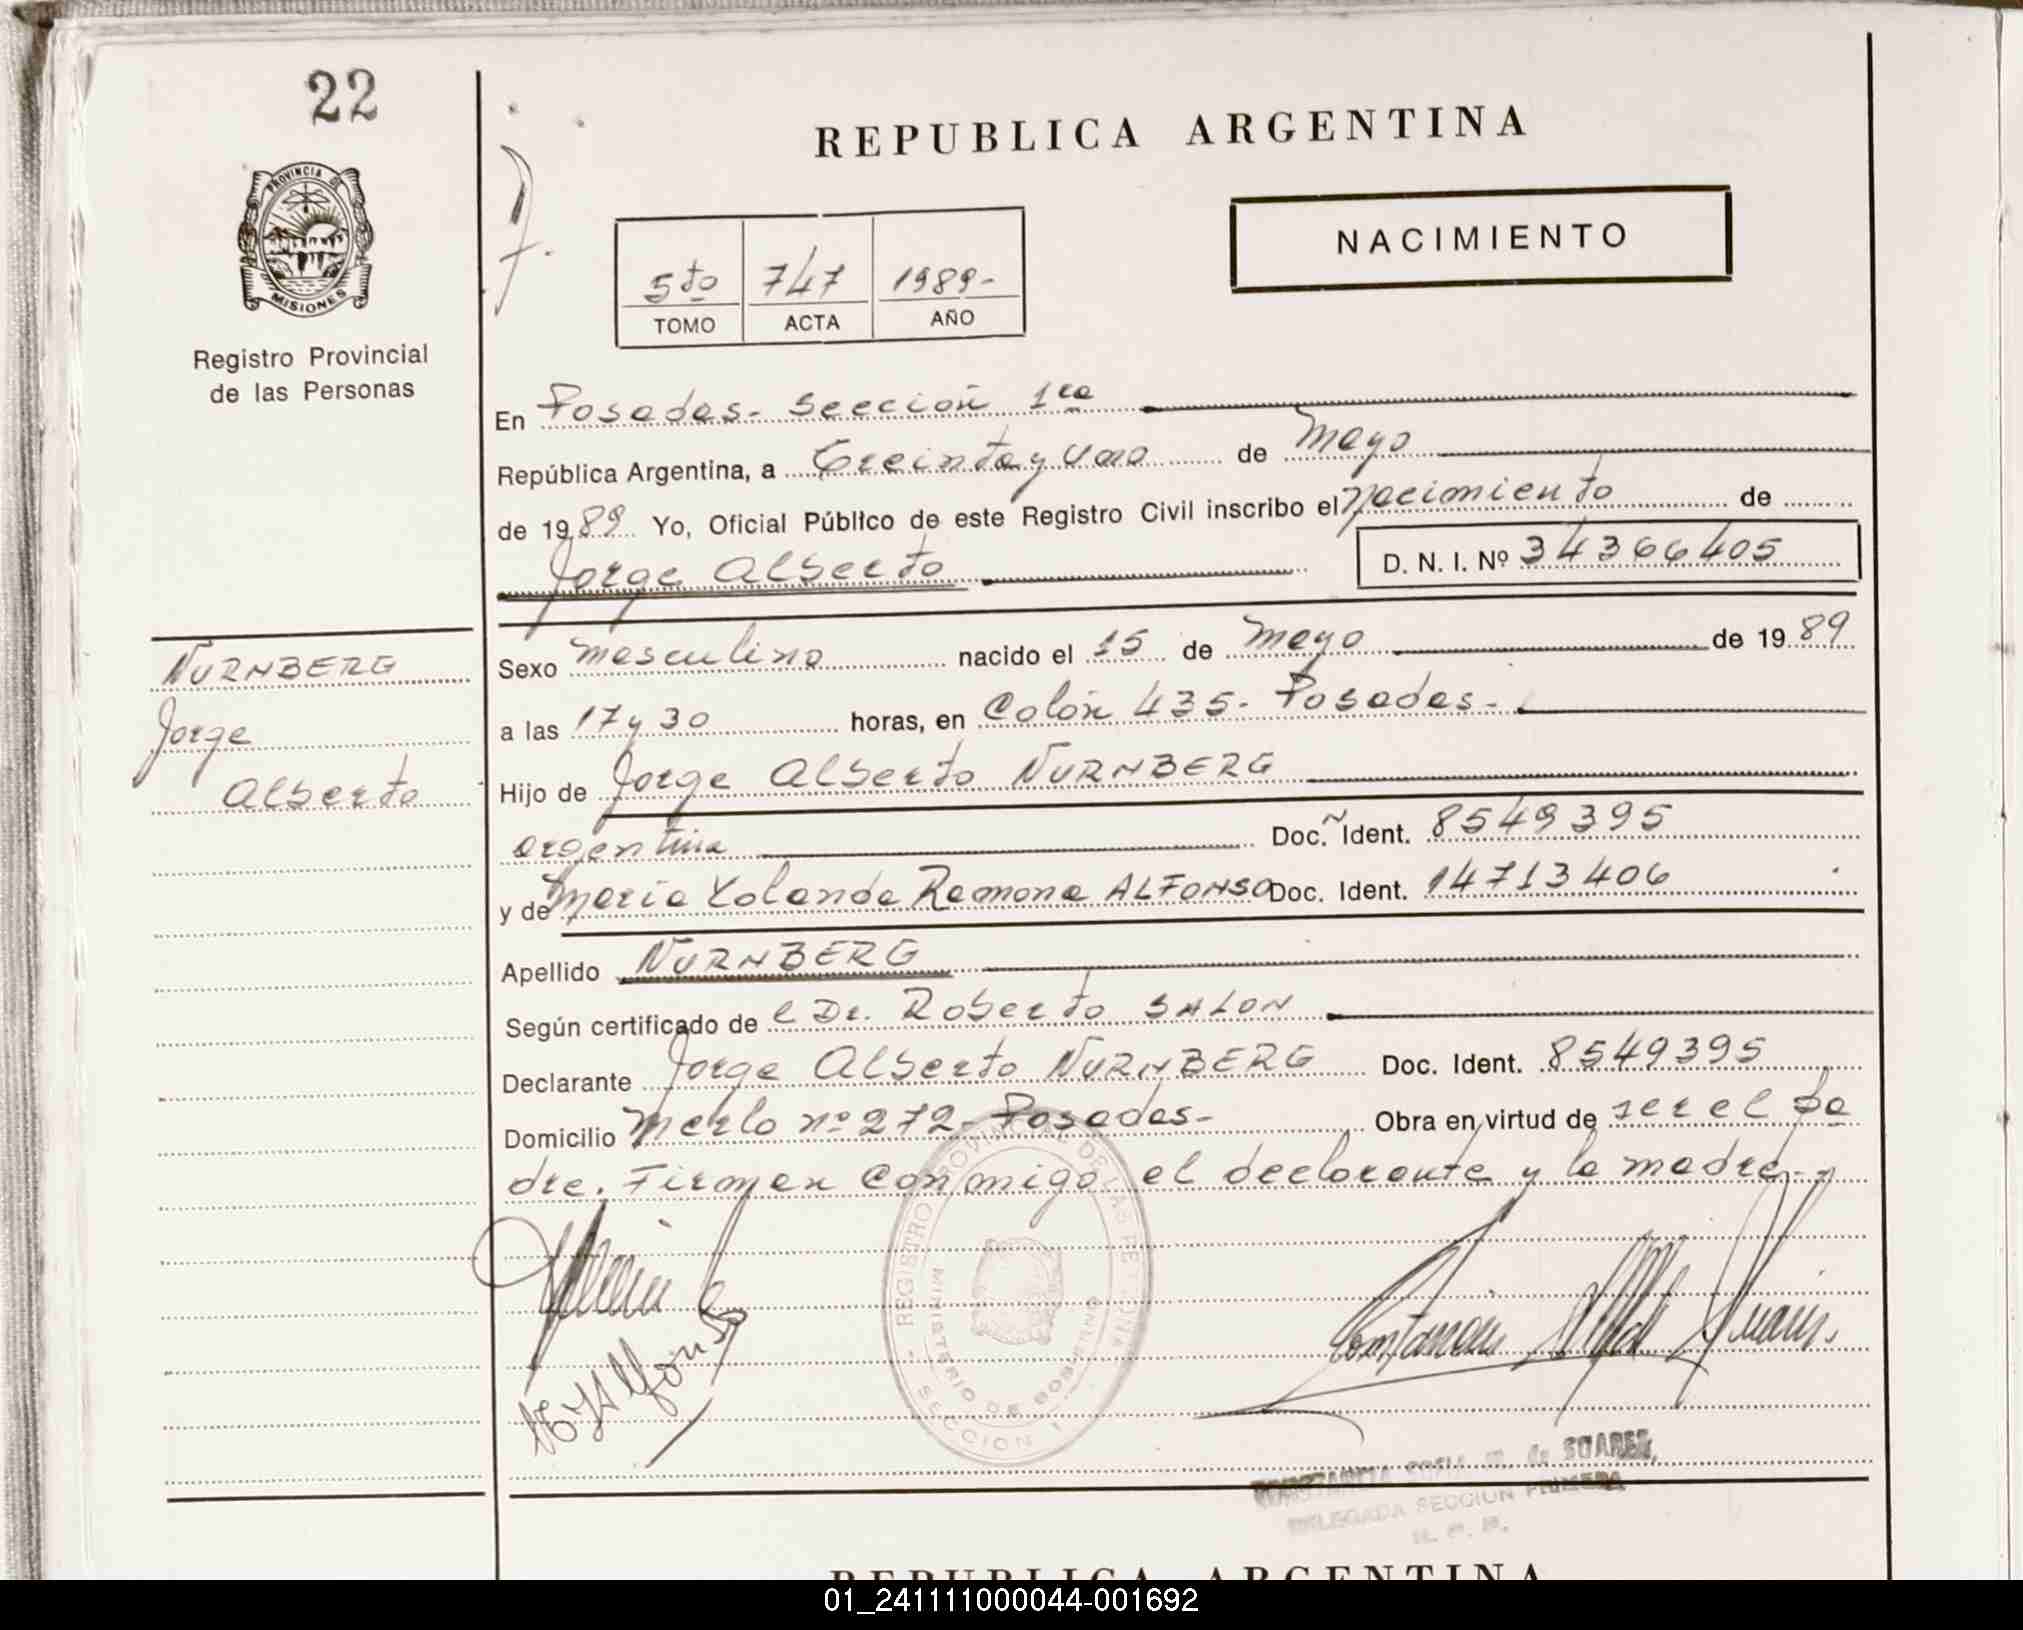 22
PROVINCIA DE
MISIONES
Registro Provincial
de las Personas
NURNBERG
Jorge
Alberto
REPUBLICA ARGENTINA
NACIMIENTO
5to 747 1989-
TOMO ACTA AÑO
En Posadas- Sección 1ra
República Argentina, a Treinta y uno de Mayo
de 1989 Yo, Oficial Público de este Registro Civil inscribo el nacimiento de
Jorge Alberto D. N. I. Nº 34366405
Sexo masculino nacido el 15 de Mayo de 1989
a las 17 y 30 horas, en Colón 435- Posadas-
Hijo de Jorge Alberto NURNBERG
argentina Doc. Ident. 8549395
y de Maria Yolanda Ramona ALFONSO Doc. Ident. 14713406
Apellido NURNBERG
Según certificado de el Dr. Roberto SALON
Declarante Jorge Alberto NURNBERG Doc. Ident. 8549395
Domicilio Merlo nº 272- Posadas- Obra en virtud de ser el pa
dre. Firman conmigo el declarante y la madre-
REGISTRO PROVINCIAL DE LAS PERSONAS
MINISTERIO DE GOBIERNO
SECCION 1
Alfonso
CONSTANCIA SOFIA M. de SUAREZ
DELEGADA SECCION PRIMERA
R. P. P.
REPUBLICA ARGENTINA
01_241111000044-001692